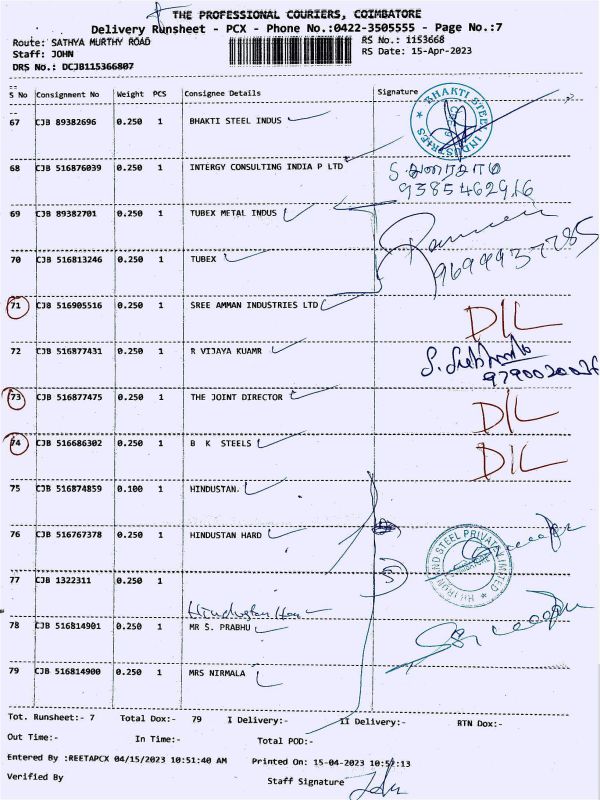 THE PROFESSIONAL COURIERS, COIMBATORE
Delivery Runsheet - PCX - Phone No.:0422-3505555 - Page No.:7
Route: SATHYA MURTHY ROAD
RS No.: 1153668
Staff: JOHN
RS Date: 15-Apr-2023
DRS No.: DCJB115366807
S No Consignment No Weight PCS Consignee Details Signature
67 CJB 89382696 0.250 1 BHAKTI STEEL INDUS
BHAKTI STEEL INDUSTRIES
68 CJB 516876039 0.250 1 INTERGY CONSULTING INDIA P LTD
9385462916
69 CJB 89382701 0.250 1 TUBEX METAL INDUS
70 CJB 516813246 0.250 1 TUBEX
71 CJB 516905516 0.250 1 SREE AMMAN INDUSTRIES LTD DIL
72 CJB 516877431 0.250 1 R VIJAYA KUAMR
73 CJB 516877475 0.250 1 THE JOINT DIRECTOR DIL
74 CJB 516686302 0.250 1 B K STEELS DIL
75 CJB 516874859 0.100 1 HINDUSTAN.
76 CJB 516767378 0.250 1 HINDUSTAN HARD
77 CJB 1322311 0.250 1
5
78 CJB 516814901 0.250 1 MR S. PRABHU
79 CJB 516814900 0.250 1 MRS NIRMALA
Tot. Runsheet:- 7 Total Dox:- 79 I Delivery:- II Delivery:- RTN Dox:-
Out Time:- In Time:- Total POD:-
Entered By :REETAPCX 04/15/2023 10:51:40 AM Printed On: 15-04-2023 10:52:13
Verified By Staff Signature